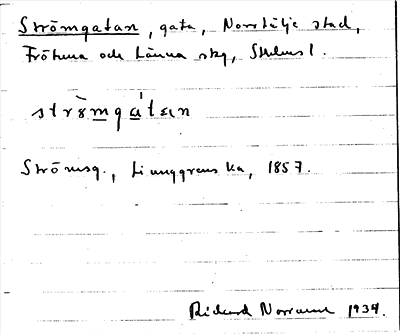 Strömgatan, gata, Norrtälje stad,
Frötuna och Länna skg, Sthlms l.
strömgatan
Strömsg., Ljunggrens ka, 1857.
Rickard 1934.